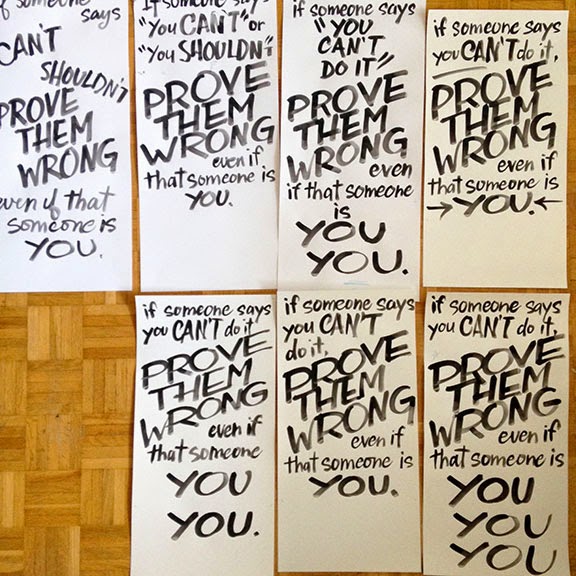 if someone
says
CAN'T
SHOULDN'T
PROVE
THEM
WRONG
even if that
someone is
YOU.
If someone says
"You CAN'T" or
"You SHOULDN'T
PROVE
THEM
WRONG
even if
that someone is
YOU.
if someone says
"YOU
CAN'T
DO IT"
PROVE
THEM
WRONG
even
if that someone
is
YOU
YOU.
if someone says
you CAN'T do it,
PROVE
THEM
WRONG
even if
that someone is
→YOU.←
if someone says
you CAN'T do it
PROVE
THEM
WRONG
even if
that someone
YOU
YOU.
if someone says
you CAN'T
do it,
PROVE
THEM
WRONG
even if
that someone is
YOU.
if someone says
you CAN'T do it,
PROVE
THEM
WRONG
even if
that someone is
YOU
YOU
YOU